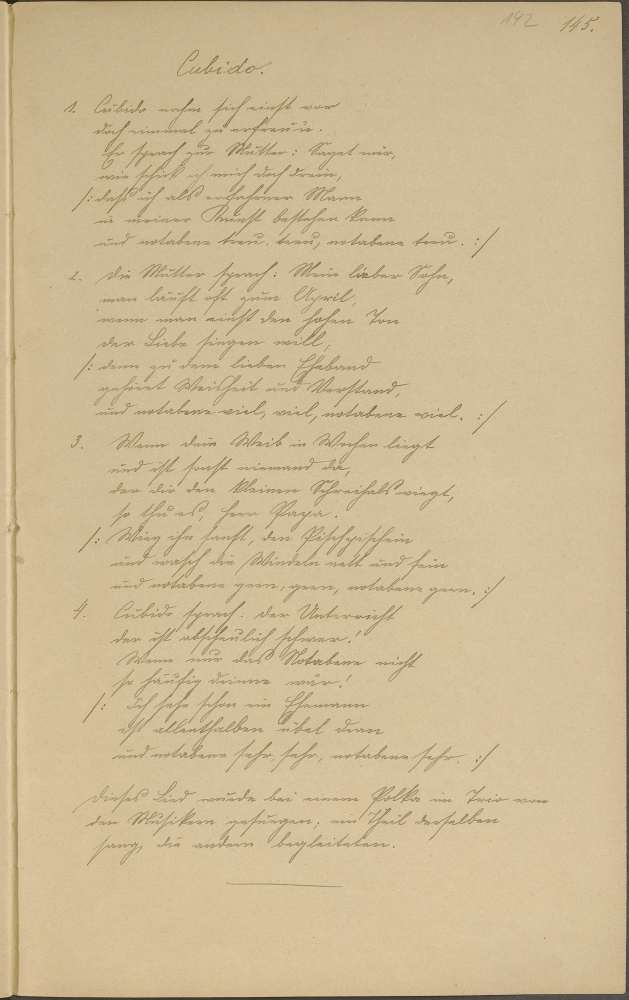 192 145.
Cubido.
1. Cubido nahm sich einst vor
doch einmal zu erfreuen.
Er sprach zur Mutter: Saget mir,
wie schick ich mich doch drein,
/: daß ich als erfahrner Mann
in meiner Kunst bestehen kann
und notabene treu, treu, notabene treu. :/
2. Die Mutter sprach: Mein lieber Sohn,
man läuft oft zum April,
wenn man einst den hohen Ton
der Liebe singen will,
/: denn zu dem lieben Eheband
gehöret Weisheit und Verstand,
und notabene viel, viel, notabene viel. :/
3. Wenn dein Weib in Wochen liegt
und ist sonst niemand da,
der dir den kleinen Schreihals wiegt,
so thu es, Herr Papa.
/: Wieg ihn sacht, den Pischpischein
und wasch die Windeln nett und fein
und notabene gern, gern, notabene gern. :/
4. Cubido sprach: der Unterricht
der ist abscheulich schwer!
Wenn nur das Notabene nicht
so häufig drinne wär!
/: Ich sehe schon ein Ehemann
ist allenthalben übel dran
und notabene sehr, sehr, notabene sehr. :/
Dieses Lied wurde bei einem Polka im Trio von
den Musikern gesungen; ein Theil derselben
sang, die andern begleiteten.